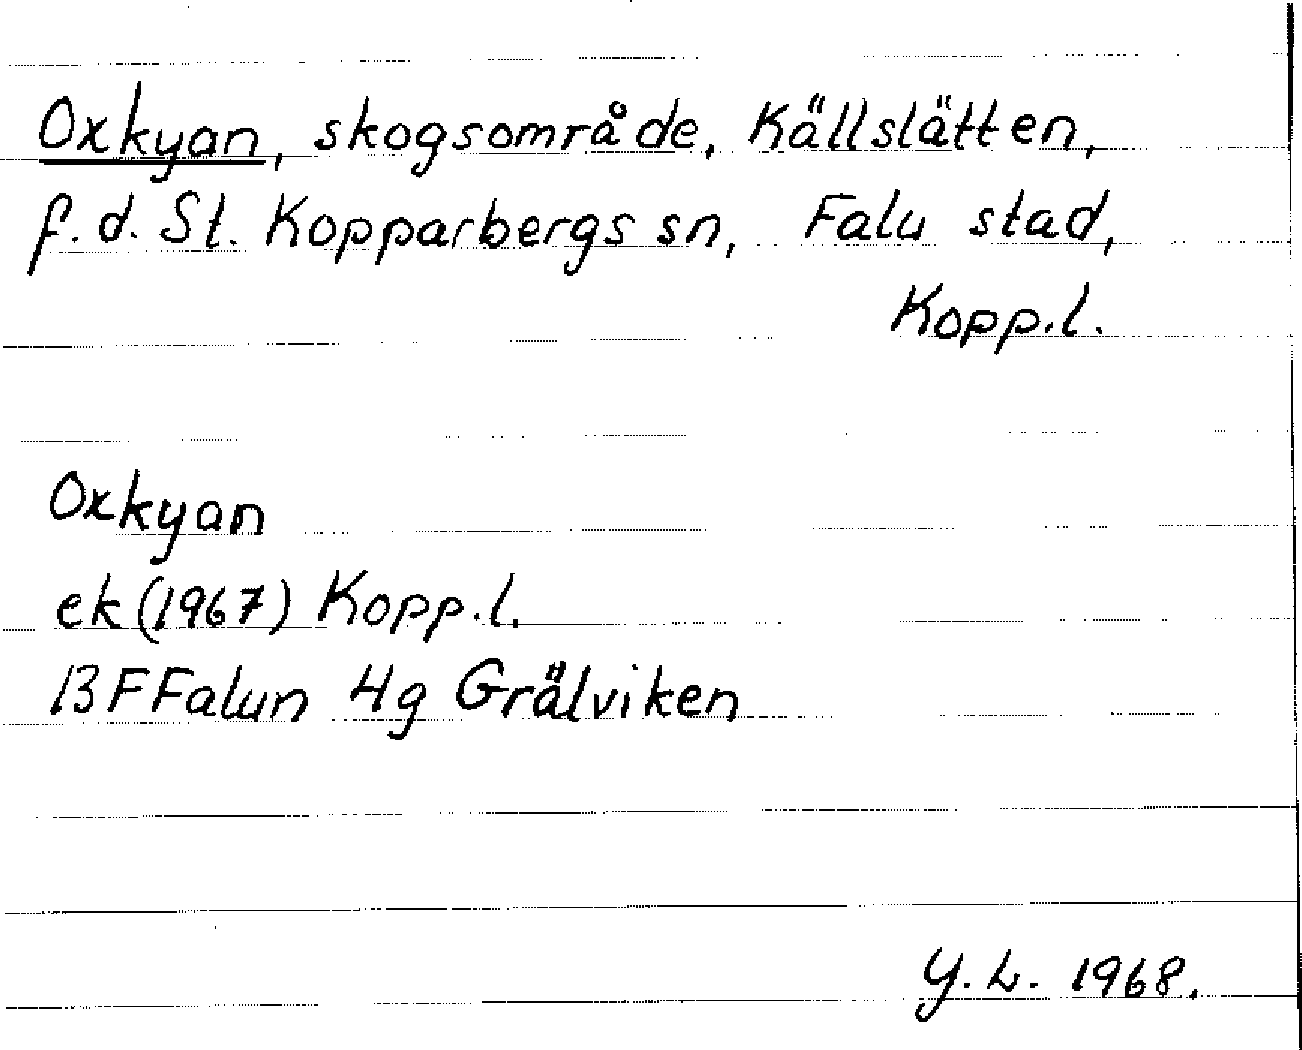 Oxkyan, skogsområde, Källslätten,
f.d. St. Kopparbergs sn, Falu stad,
Kopp.l.
Oxkyan
ek (1967) Kopp.l.
13 F Falun 4g Grälviken
Y.L. 1968.